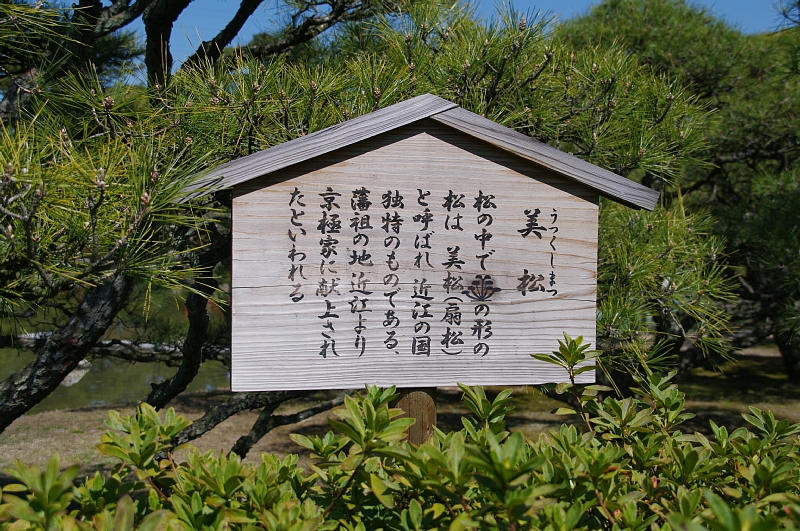 うつくしまつ
美松
松の中でこの形の
松は 美松(扇松)
と呼ばれ 近江の国
独特のものである、
藩祖の地 近江より
京極家に献上され
たといわれる